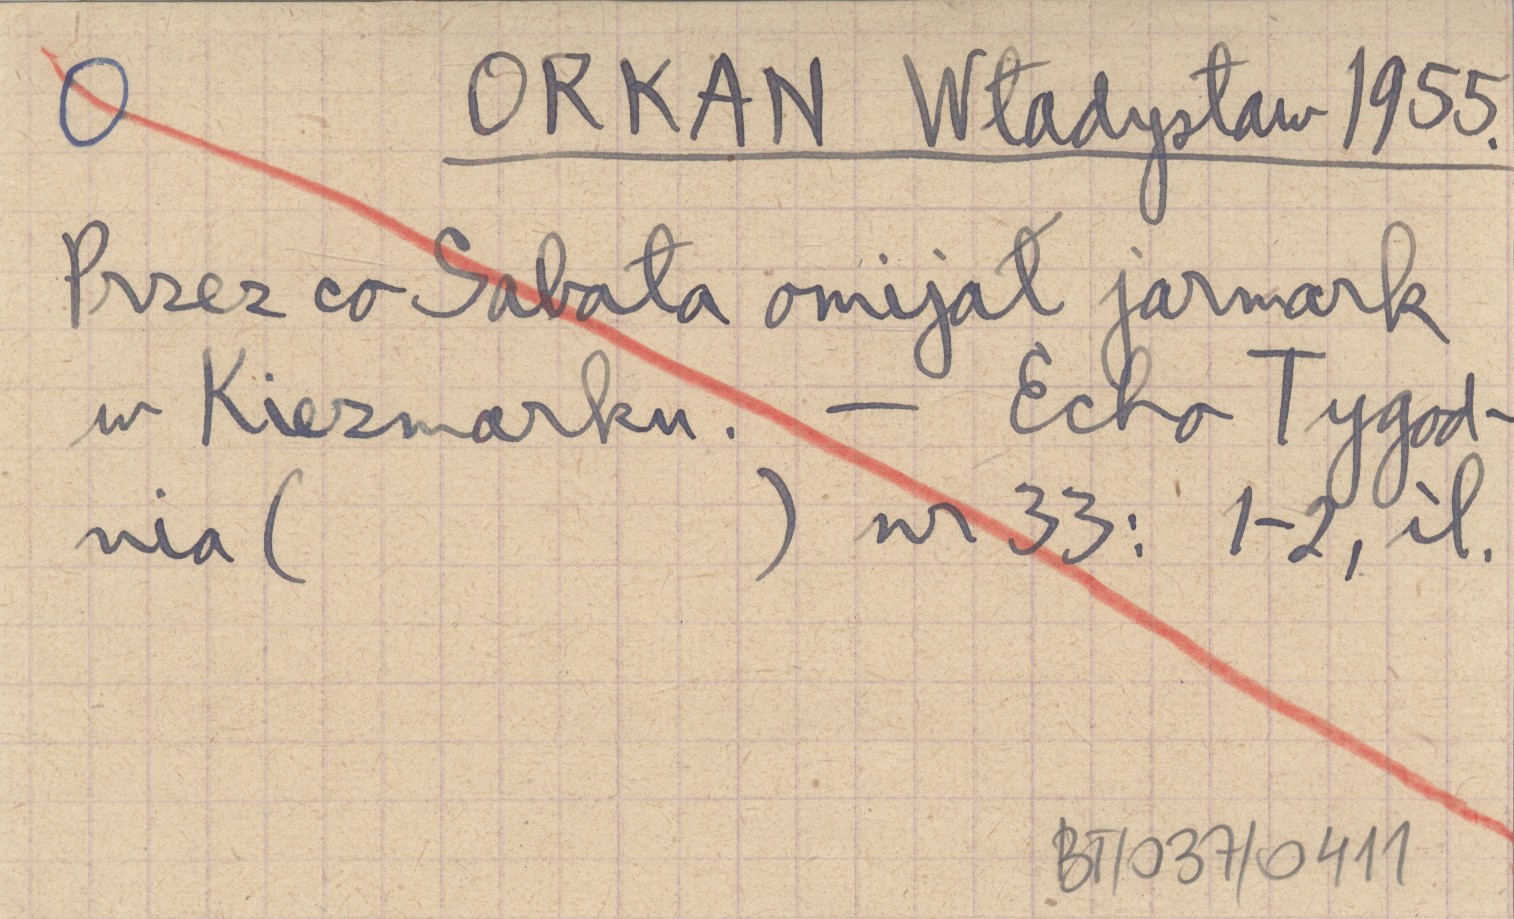 O ORKAN Władysław 1955.
Przez co Sabała omijał jarmark
w Kiezmarku. — Echo Tygod-
nia (                ) nr 33: 1-2, il.
BT/037/0411